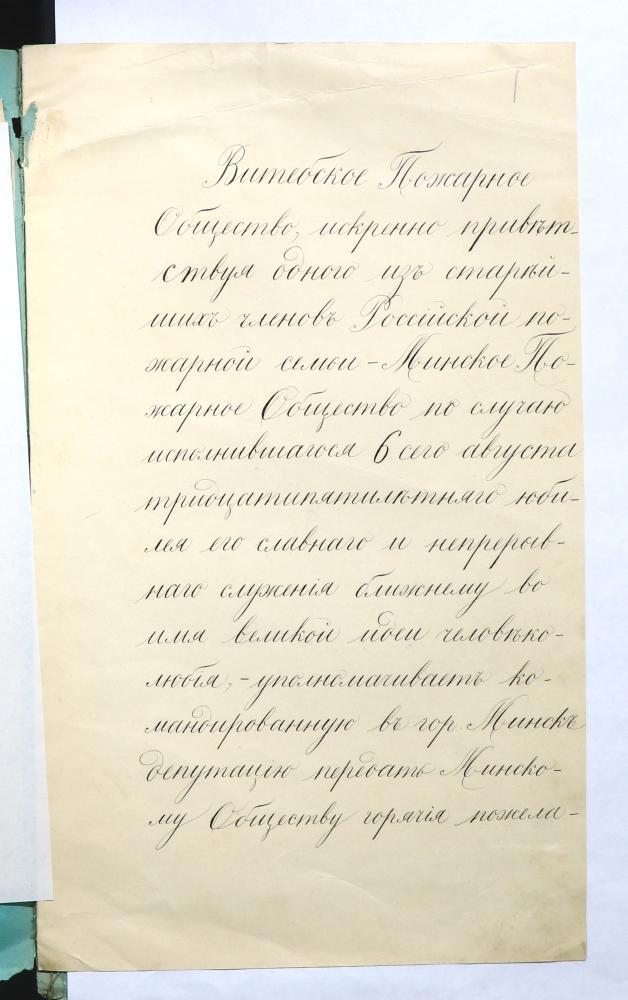 Витебское Пожарное
Общество, искренно привѣт-
ствуя одного изъ старѣй-
шихъ членовъ Россійской по-
жарной семьи - Минское По-
жарное Общество по случаю
исполнившагося 6 сего августа
тридцатипятилѣтняго юби-
лея его славнаго и непрерыв-
наго служенія ближнему во
имя великой идеи человѣко-
любія, - уполномачиваетъ ко-
мандированную въ гор. Минскъ
депутацію передать Минско-
му Обществу горячія пожела-